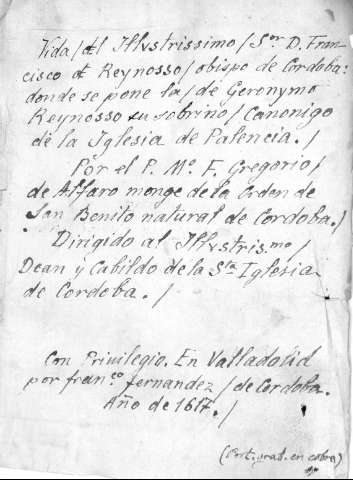 Vida / del Illvstrissimo / Sor D. Fran-
cisco de Reynosso / obispo de Cordoba:
donde se pone la / de Geronymo
Reynosso su sobrino / Canonigo
de la Iglesia de Palencia. /
Por el P. Mo. F. Gregorio /
de Alfaro monge de la Orden de
San Benito natural de Cordoba. /
Dirigido al Illvstris.mo /
Dean y Cabildo de la Sta Iglesia
de Cordoba. /
Con Privilegio. En Valladolid
por fran.co fernandez / de Cordoba.
Año de 1617. /
(Port. grab. en cobre)